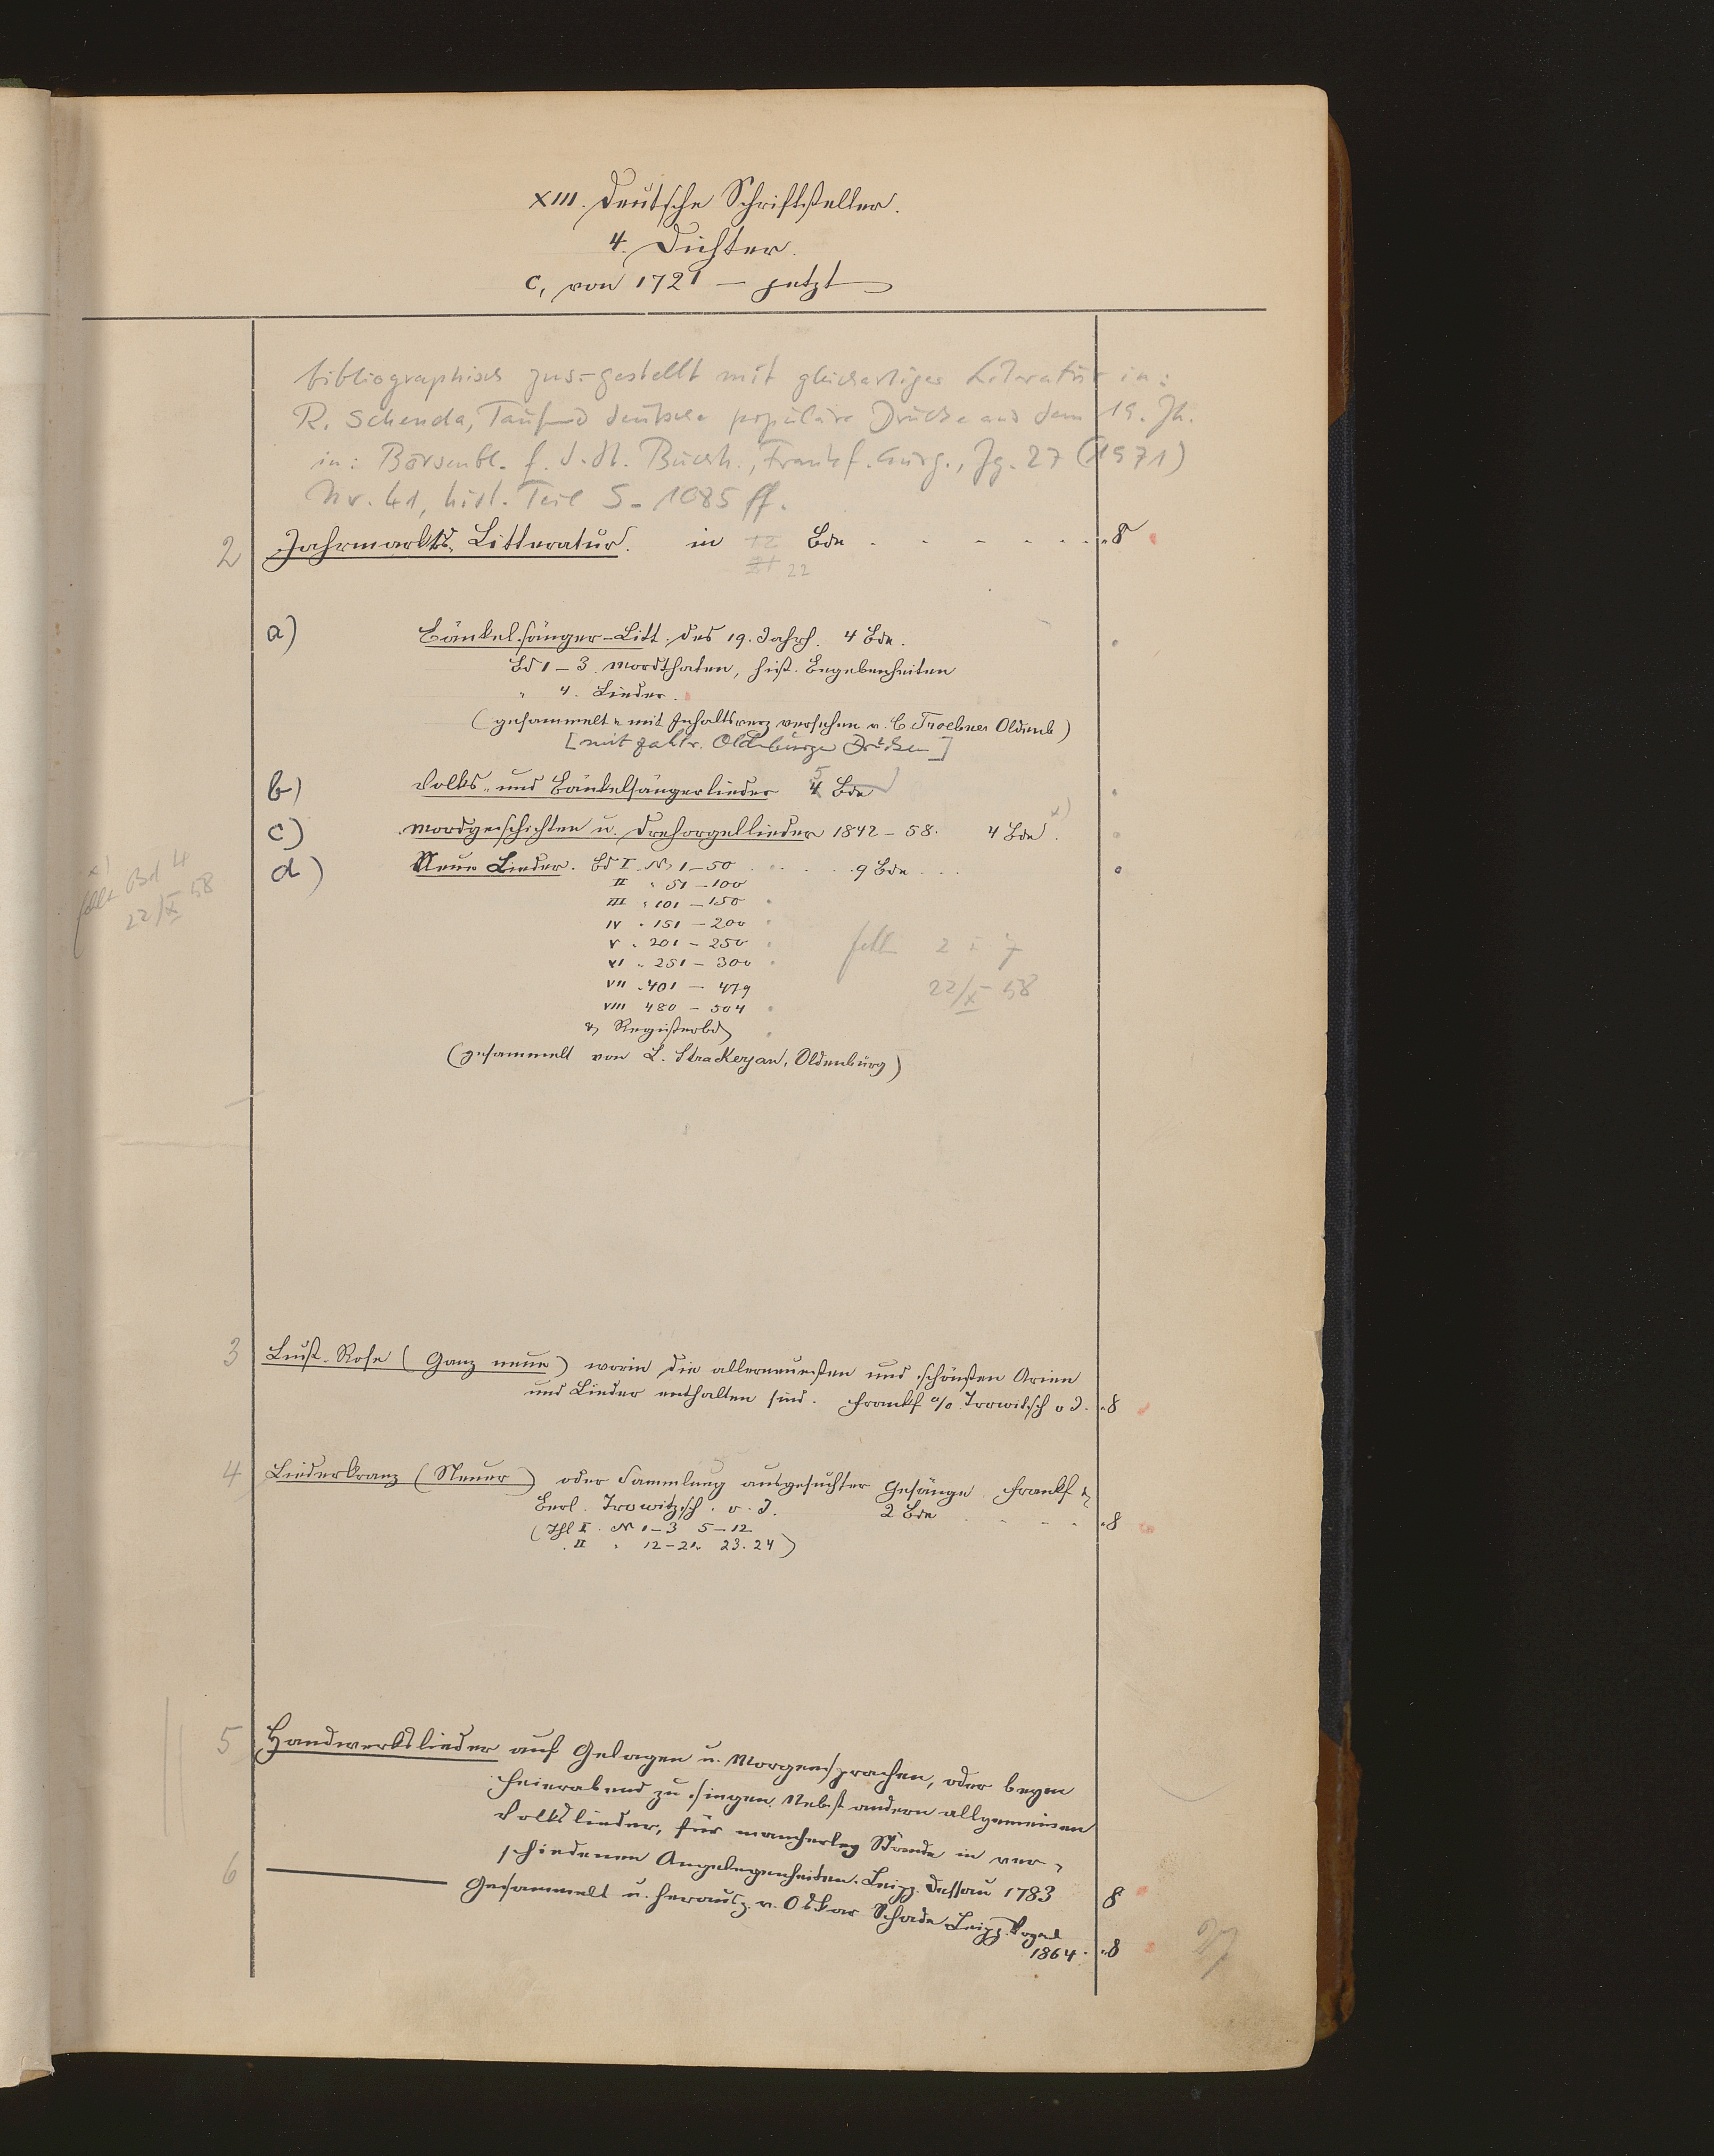 XIII. Deutsche Schriftsteller.
4. Dichter.
c, von 1721 — jetzt
bibliographisch zus.-gestellt mit gleichartiger Literatur in:
R. Schenda, Tausend deutsche populäre Drucke aus dem 19. Jh.
in: Börsenbl. f. d. dt. Buchh., Frankf. Ausg., Jg. 27 (1971)
Nr. 41, hist. Teil S. 1085 ff.
2 Jahrmarkts-Litteratur. in 12 Bde . . . . . . 8
21 22
a) Bänkelsänger-Litt. des 19. Jahrh. 4 Bde.
Bd 1–3 Mordthaten, hist. Begebenheiten
" 4. Lieder.
(gesammelt u mit Inhaltsverz versehen v. C Troebner Oldenb)
[mit zahlr. Oldenburger Drucken]
b) Volks- und Bänkelsängerlieder 4 5 Bde
c) Mordgeschichten u. Drehorgellieder 1842–58. 4 Bde x).
x) fehlt Bd 4
22/X 58
d) Neue Lieder. Bd I. No 1–50 . . . . 9 Bde . . .
II " 51–100
III " 101–150
IV " 151–200
V " 201–250
VI " 251–300
VII " 401–479
VIII 480–504
& Registerbd
fehlt 2 u 7
22/X 58
(gesammelt von L. Strackerjan, Oldenburg)
3 Lust-Rose (Ganz neue) worin die allerneuesten und schönsten Arien
und Lieder enthalten sind. Frankf a/o. Trowitzsch o J. 8
4 Liederkranz (Neuer) oder Sammlung ausgesuchter Gesänge. Frankf &
Berl. Trowitzsch. o. J. 2 Bde . . . . 8
(Thl I. No 1–3 5–12
" II " 12–21. 23.24)
5 Handwerkslieder auf Gelagen u. Morgensprachen, oder beym
Feierabend zu singen. Nebst andern allgemeinen
Volksliedern, für mancherley Stände in ver-
schiedenen Angelegenheiten. Leipz. Dessau 1783 8
6 ——— Gesammelt u. herausg. v. Oskar Schade Leipz. Vogel
1864. 8
27